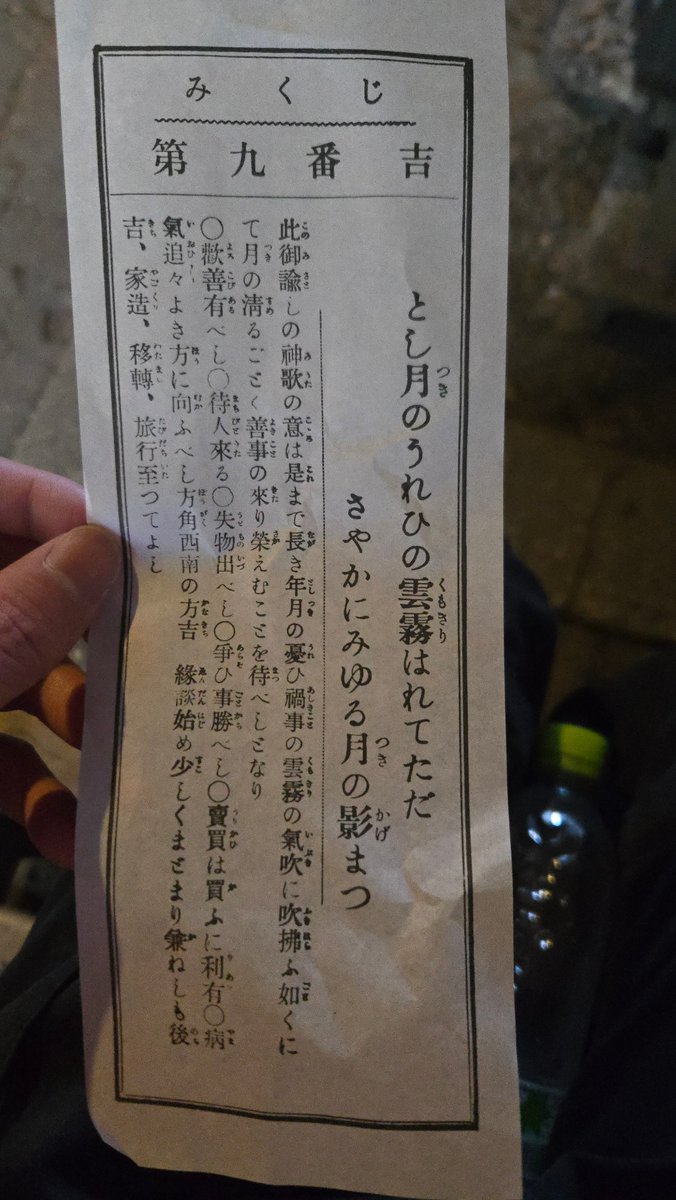 みくじ
第九番吉
とし月のうれひの雲霧はれてただ
さやかにみゆる月の影まつ
此御諭しの神歌の意は是まで長き年月の憂ひ禍事の雲霧の氣吹に吹拂ふ如くに
て月の淸るごとく善事の來り榮えむことを待べしとなり
〇歡善有べし〇待人來る〇失物出べし〇爭ひ事勝べし〇賣買は買ふに利有〇病
氣追々よき方に向ふべし方角西南の方吉 緣談始め少しくまとまり兼ねしも後
吉、家造、移轉、旅行至つてよし